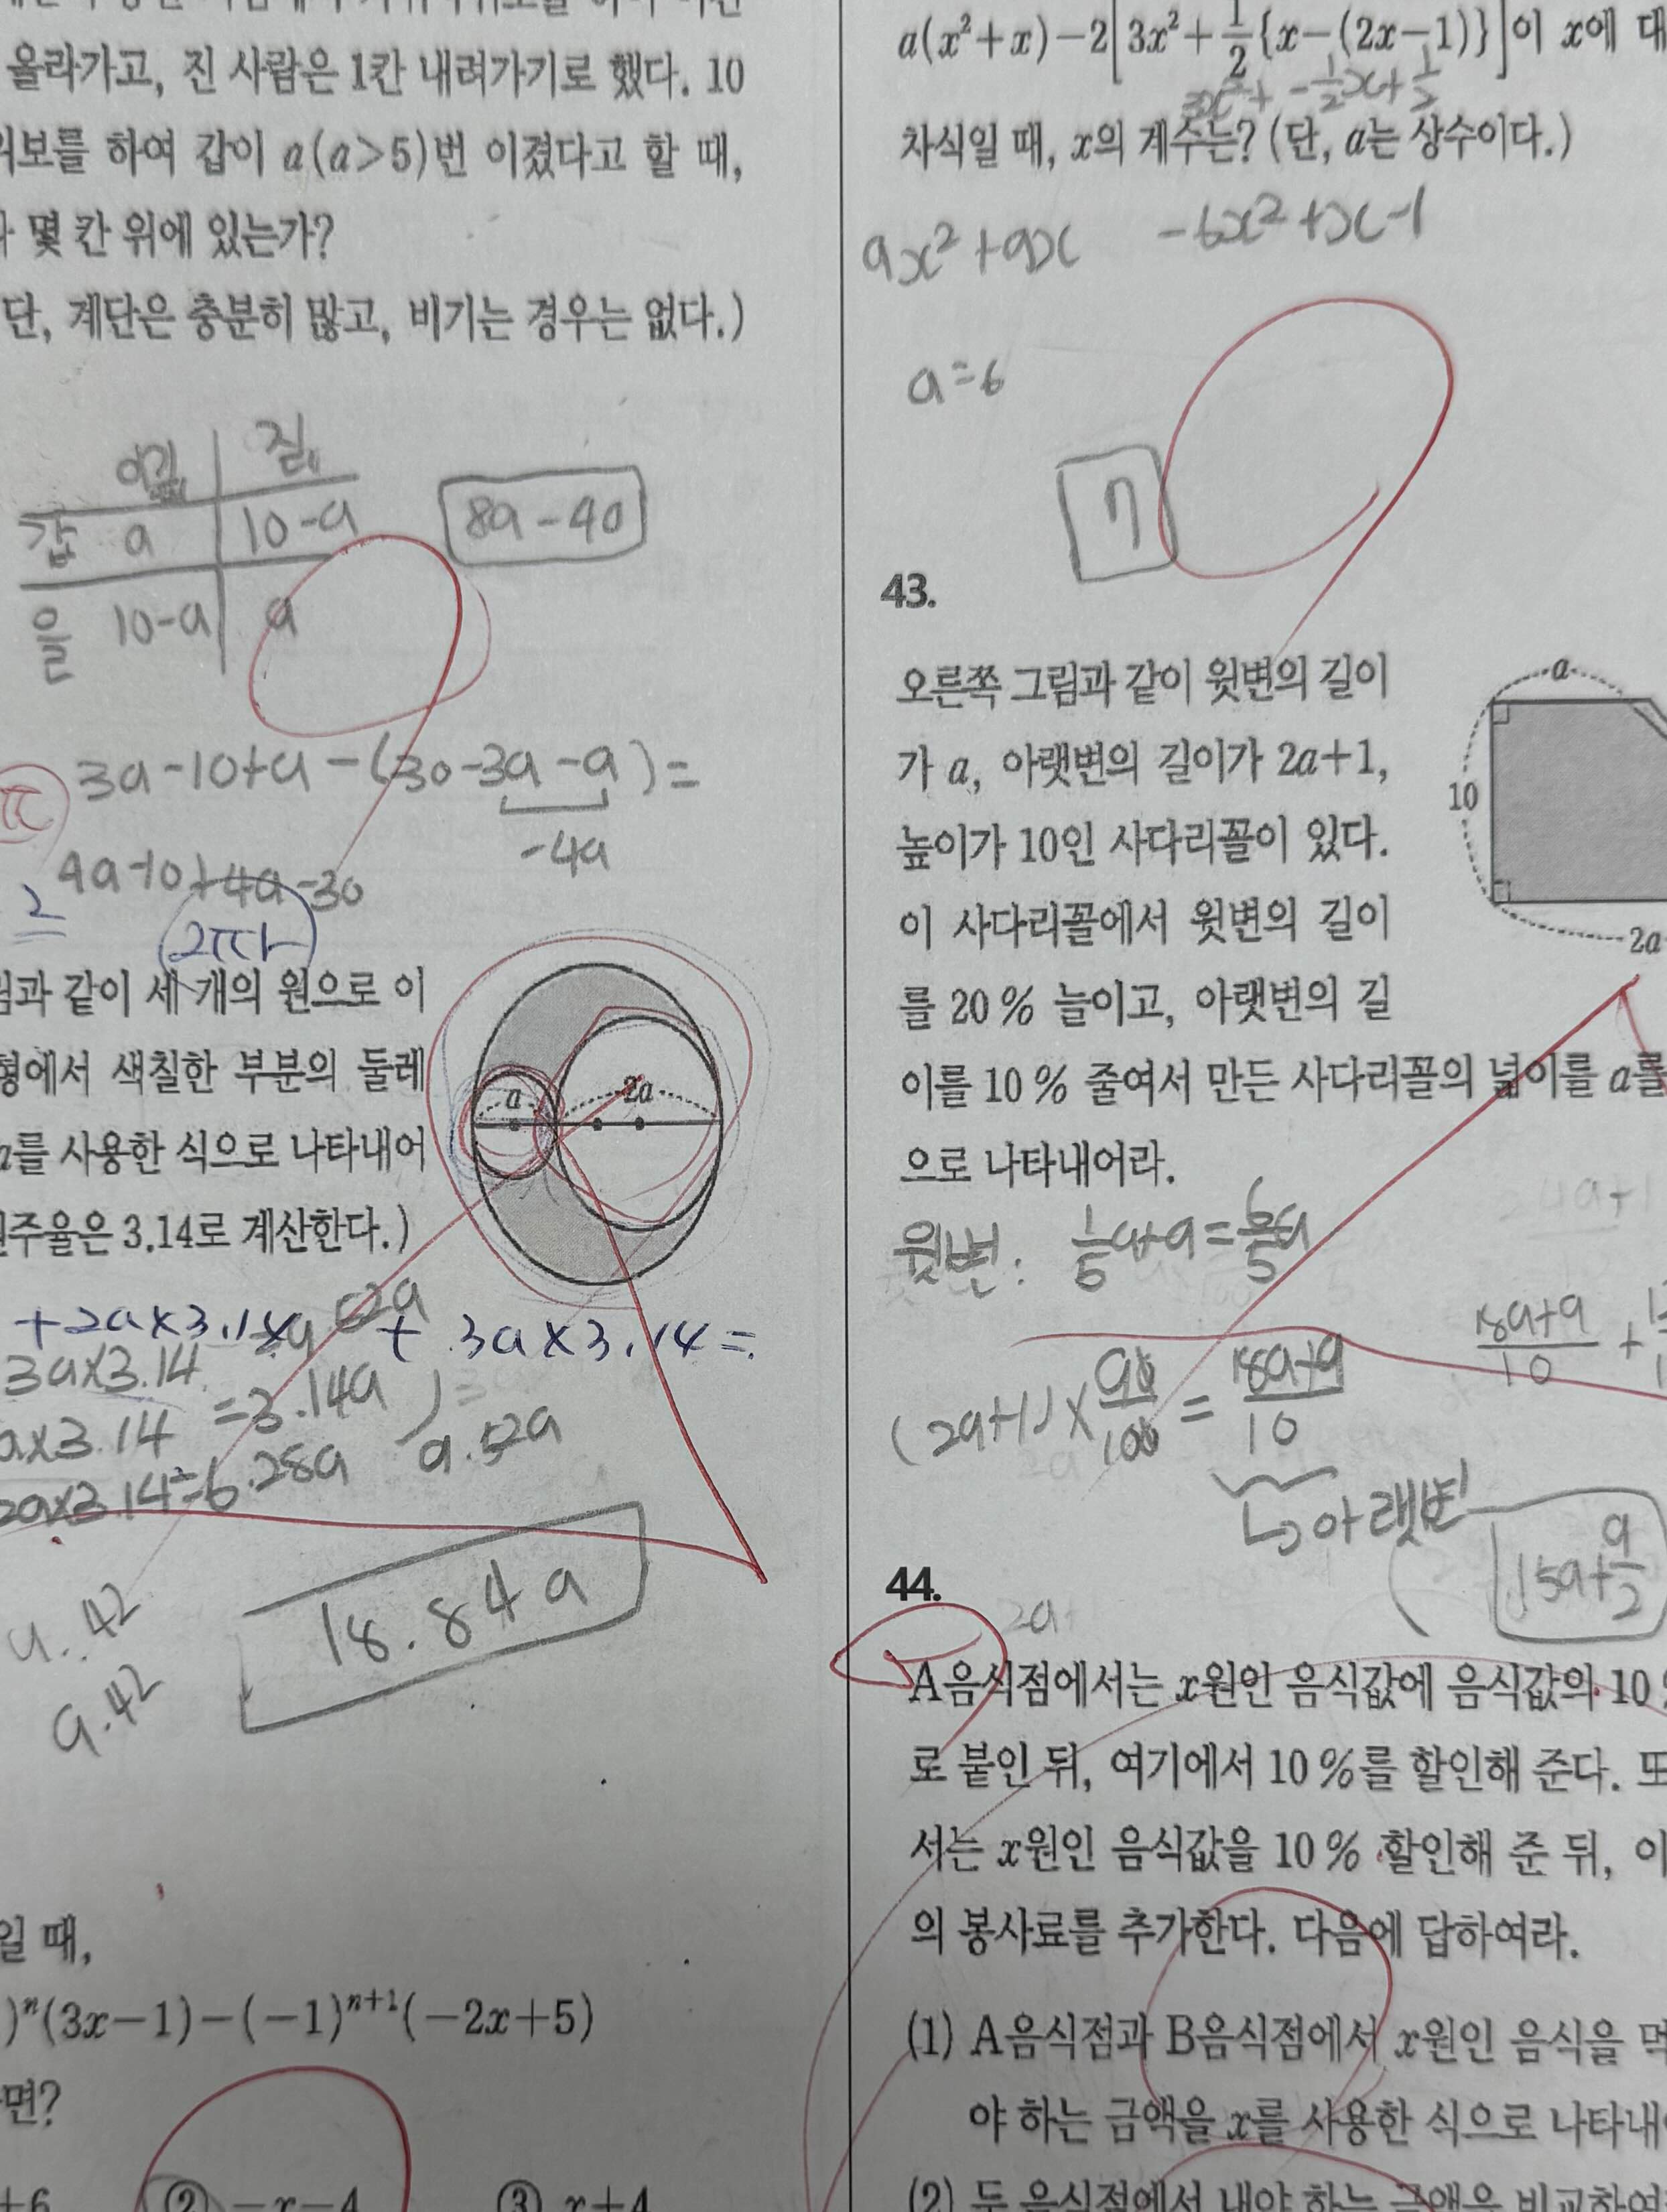 올라가고, 진 사람은 1칸 내려가기로 했다. 10
위보를 하여 갑이 a(a>5)번 이겼다고 할 때,
몇 칸 위에 있는가?
단, 계단은 충분히 많고, 비기는 경우는 없다.)
이김 짐
갑 a 10-a
을 10-a a
8a-40
3a-10+a-(30-3a-a)=
-4a
4a-10+4a-30
2
2πr
림과 같이 세 개의 원으로 이
형에서 색칠한 부분의 둘레
a를 사용한 식으로 나타내어
원주율은 3.14로 계산한다.)
a
2a
+2a×3.14 + 3a×3.14=
3a×3.14
a×3.14 =3.14a
2a×3.14=6.28a
18.84a
9.42
일 때,
)ⁿ(3x-1)-(-1)ⁿ⁺¹(-2x+5)
면?
+6 ② -x-4 ③ x+4
a(x²+x)-2[3x²+1/2{x-(2x-1)}]이 x에 대
3x²+ -1/2x+1/2
차식일 때, x의 계수는? (단, a는 상수이다.)
ax²+ax -6x²+x-1
a=6
7
43.
오른쪽 그림과 같이 윗변의 길이
가 a, 아랫변의 길이가 2a+1,
높이가 10인 사다리꼴이 있다.
이 사다리꼴에서 윗변의 길이
를 20 % 늘이고, 아랫변의 길
이를 10 % 줄여서 만든 사다리꼴의 넓이를 a를
으로 나타내어라.
a
10
2a
윗변: 1/5a+a=6/5a
(2a+1)×90/100=18a+9/10
18a+9/10 +
↳아랫변
15a+9/2
44.
A음식점에서는 x원인 음식값에 음식값의 10%
로 붙인 뒤, 여기에서 10 %를 할인해 준다. 또
서는 x원인 음식값을 10 % 할인해 준 뒤, 이
의 봉사료를 추가한다. 다음에 답하여라.
(1) A음식점과 B음식점에서 x원인 음식을 먹
야 하는 금액을 x를 사용한 식으로 나타내
(2) 두 음식점에서 내야 하는 금액을 비교하여